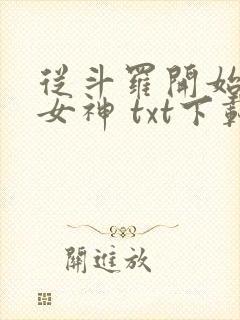 從斗羅開始
女神 txt下載
關進放